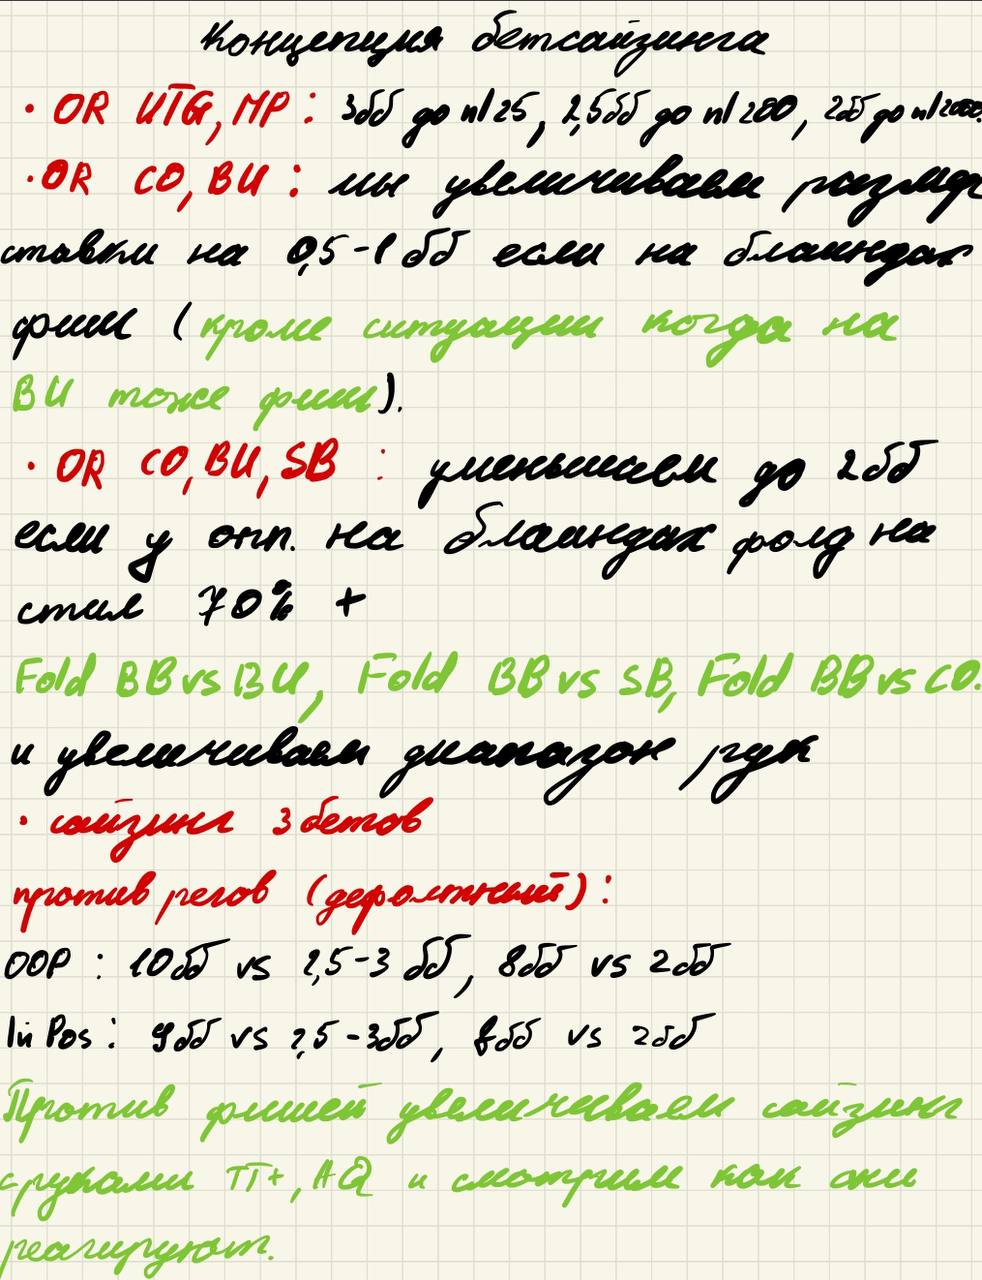 Концепция бетсайзинга
• OR UTG, MP : 3бб до nl25, 2,5бб до nl200, 2бб до nl2000.
• OR CO, BU : мы увеличиваем размер
ставки на 0,5-1 бб если на блаиндах
фиш (кроме ситуации когда на
BU тоже фиш).
• OR CO, BU, SB : уменьшаем до 2бб
если у опп. на блаиндах фолд на
стил 70% +
Fold BB vs BU, Fold BB vs SB, Fold BB vs CO.
и увеличиваем диапазон рук
• сайзинг 3бетов
против регов (дефолтный) :
OOP : 10бб vs 2,5-3 бб, 8бб vs 2бб
In Pos : 9бб vs 2,5-3бб, 8бб vs 2бб
Против фишей увеличиваем сайзинг
с руками TT+, AQ и смотрим как они
реагируют.